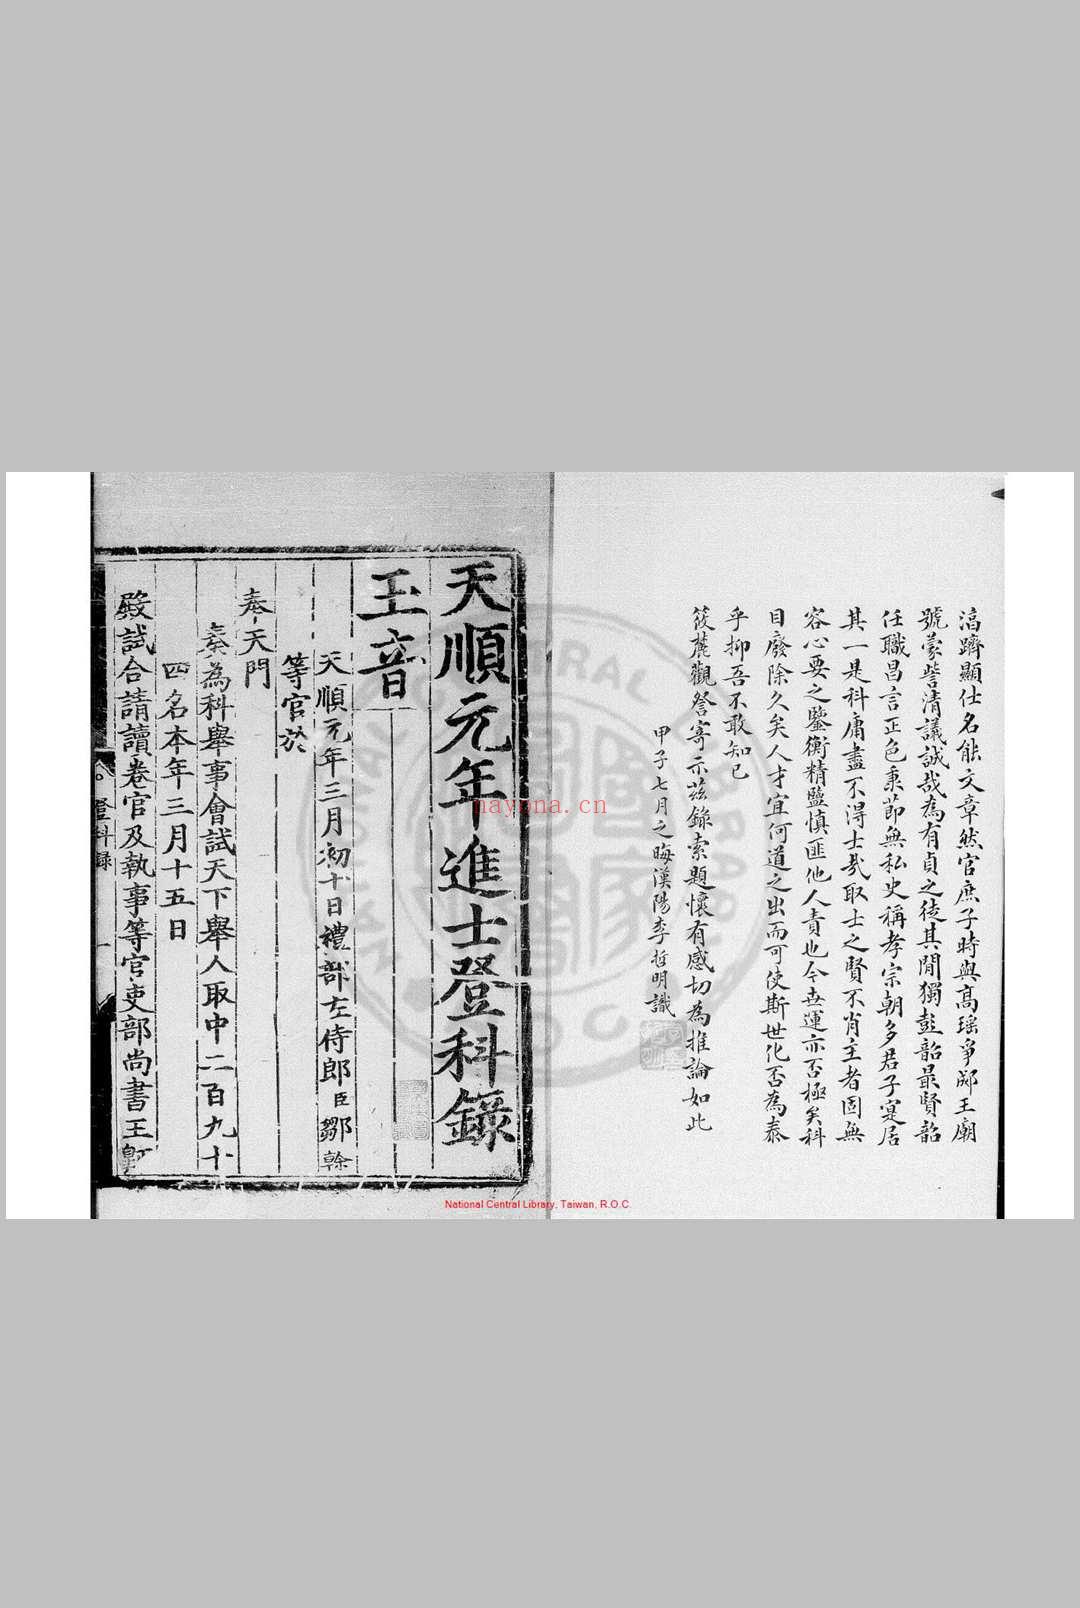 滔躋顯仕名能文章然官庶子時與高瑶爭郕王廟
號蒙訾清議誠哉為有貞之徒其閒獨彭韶最賢韶
任職昌言正色秉節無私史稱孝宗朝多君子寔居
其一是科庸盡不得士哉取士之賢不肖主者固無
容心要之鑒衡精鹽慎匪他人責也今世運亦否極矣科
目廢除久矣人才宜何道之出而可使斯世化否為泰
乎抑吾不敢知已
筱麓觀詧寄示茲錄索題懷有感切為推論如此
甲子七月之晦漢陽李哲明識
天順元年進士登科錄
玉音
天順元年三月初十日禮部左侍郎臣鄒榦
等官於
奉天門
奏為科舉事會試天下舉人取中二百九十
四名本年三月十五日
殿試合請讀卷官及執事等官吏部尚書王
登科錄
一
nayona.cn
NATIONAL CENTRAL LIBRARY
National Central Library, Taiwan, R.O.C.